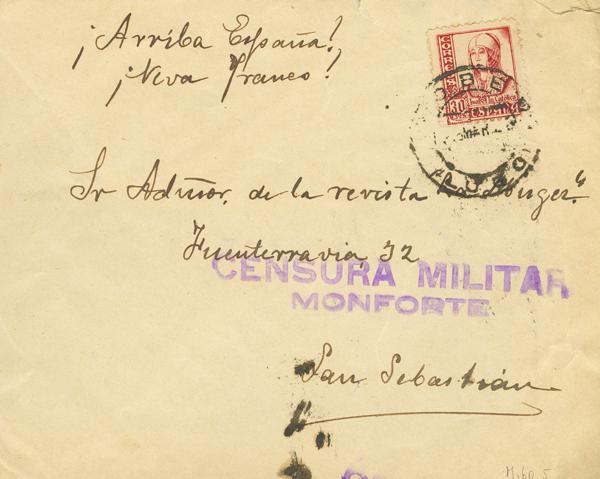 ¡Arriba España!
¡Viva Franco!
CORREOS
30
Isabel la Católica
ESPAÑA
Sr Admor. de la revista
Fuenterravia, 32
CENSURA MILITAR
MONFORTE
San Sebastián